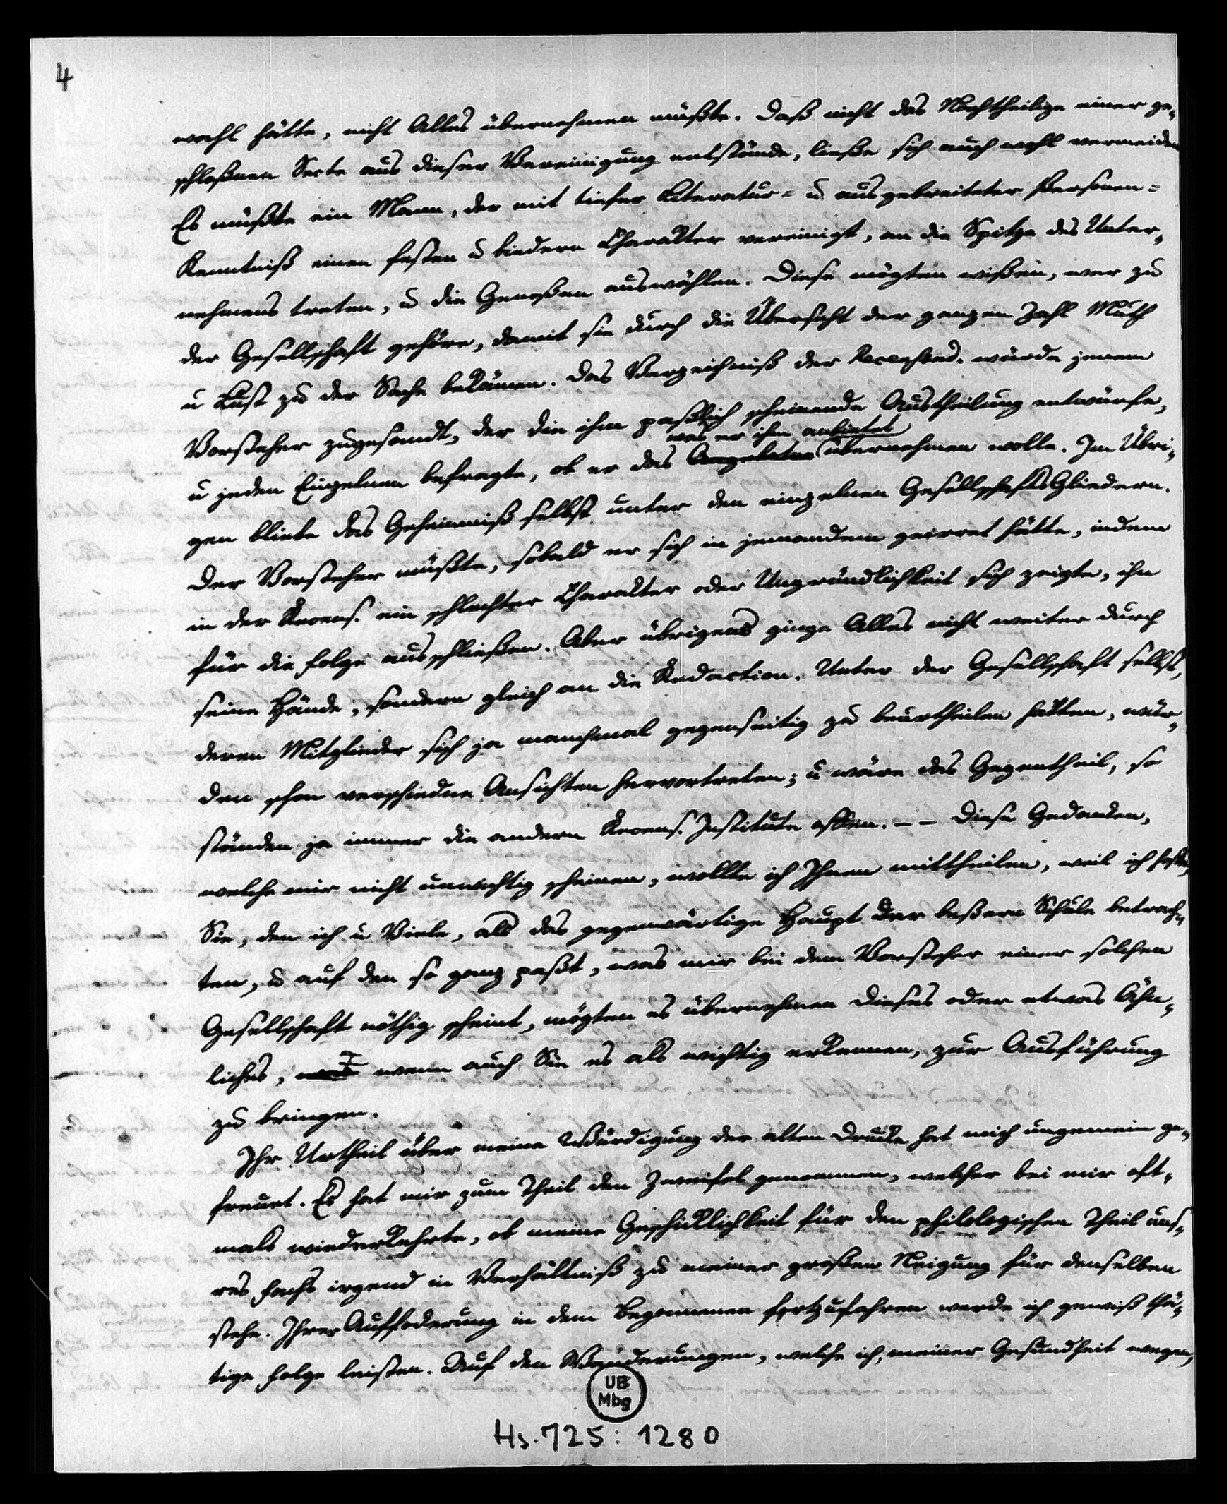 4
wohl hätte, nicht Alles übernehmen müßte. Daß nicht das Nachtheilige einer ge-
schloßnen Secte aus dieser Vereinigung entstände, ließe sich auch wohl vermeiden
Es müßte ein Mann, der mit tiefer Literatur- u ausgebreiteter Personen-
Kenntniß einen festen u biedern Charakter vereinigt, an die Spitze des Unter-
nehmens treten, u die Genoßen auswählen. Diese mögten wißen, wer zu
der Gesellschaft gehöre, damit sie durch die Übersicht der ganzen Zahl Muth
u Lust zu der Sache bekämen. Das Verzeichniß der Recensend. würde jenem
Vorsteher zugesandt, der die ihm paßlich scheinende Austheilung entwürfe,
was er ihm anbietet
u jeden Einzelnen befragte, ob er das Angebotne übernehmen wolle. Im Übri-
gen bliebe das Geheimniß selbst unter den einzelnen GesellschaftsGliedern.
Der Vorsteher müßte, sobald er sich in jemandem geirret hätte, indem
in der Recens. ein schlechter Charakter oder Ungründlichkeit sich zeigte, ihn
für die Folge ausschließen. Aber übrigens ginge Alles nicht weiter durch
seine Hände, sondern gleich an die Redaction. Unter der Gesellschaft selbst,
deren Mitglieder sich ja manchmal gegenseitig zu beurtheilen hätten, wür-
den schon verschiedne Ansichten hervortreten; u wäre das Gegentheil, so
ständen ja immer die andern Recens. Institute offen. – – Diese Gedanken,
welche mir nicht unwichtig scheinen, wollte ich Ihnen mittheilen, weil ich hoffte,
Sie, den ich u Viele, als das gegenwärtige Haupt der beßern Schule betrach-
ten, u auf den so ganz paßt, was mir bei dem Vorsteher einer solchen
Gesellschaft nöthig scheint, mögten es übernehmen dieses oder etwas Ähn-
liches, wenn auch Sie es als wichtig erkennen, zur Ausführung
zu bringen.
Ihr Urtheil über meine Würdigung der alten Drucke hat mich ungemein ge-
freuet. Es hat mir zum Theil den Zweifel genommen, welcher bei mir oft-
mals wiederkehrte, ob meine Geschicklichkeit für den philologischen Theil uns-
res Fachs irgend in Verhältniß zu meiner großen Neigung für denselben
stehe. Ihrer Aufforderung in dem Begonnenen fortzufahren werde ich gewiß thä-
tige Folge leisten. Auf den Wanderungen, welche ich, meiner Gesundheit wegen,
UB
Mbg
Hs. 725: 1280